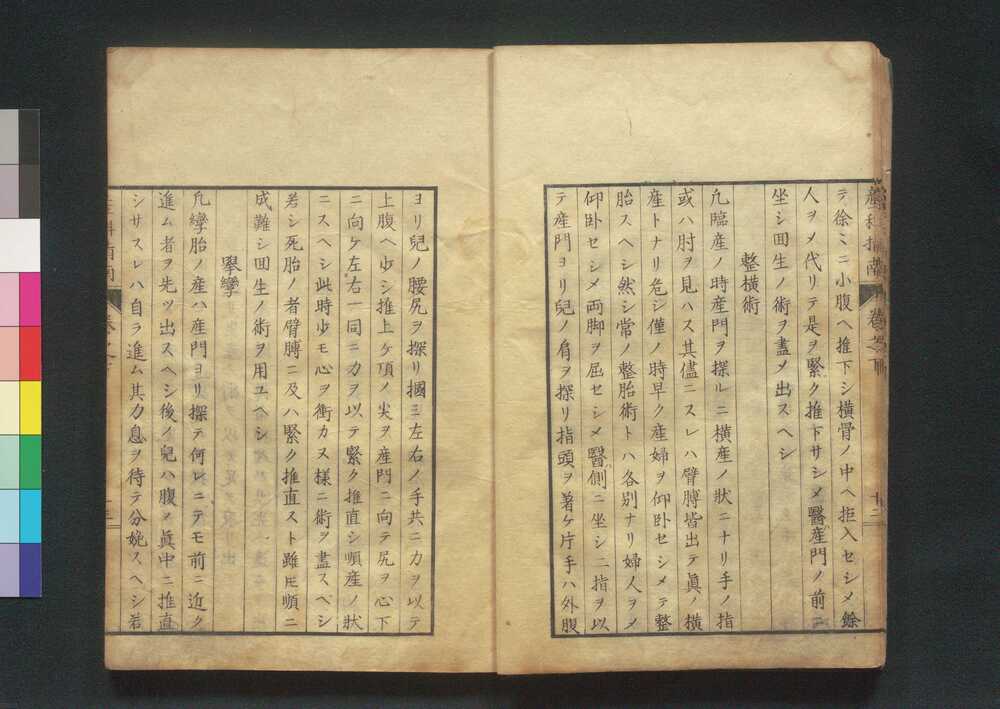 産科指南 巻之下 十二
テ徐ミニ小腹ヘ推下シ横骨ノ中ヘ拒入セシメ餘
人ヲメ代リテ是ヲ緊ク推下サシメ醫産門ノ前ニ
坐シ回生ノ術ヲ盡メ出スヘシ
整横術
凢臨産ノ時産門ヲ探ルニ横産ノ狀ニナリ手ノ指
或ハ肘ヲ見ハス其儘ニスレハ臂膊皆出テ眞ノ横
産トナリ危シ僅ノ時早ク産婦ヲ仰卧セシメテ整
胎スヘシ然シ常ノ整胎術トハ各別ナリ婦人ヲメ
仰卧セシメ両脚ヲ屈セシメ醫側ニ坐シ二指ヲ以
テ産門ヨリ兒ノ肩ヲ探リ指頭ヲ著ケ片手ハ外腹
ヨリ兒ノ腰尻ヲ探リ摑ミ左右ノ手共ニ力ヲ以テ
上腹ヘ少シ推上ケ頂ノ尖ヲ産門ニ向テ尻ヲ心下
ニ向ケ左右一同ニ力ヲ以テ緊ク推直シ順産ノ狀
ニスヘシ此時少モ心ヲ衝カヌ樣ニ術ヲ盡スベシ
若シ死胎ノ者臂膊ニ及ハ緊ク推直スト雖𪜈順ニ
成難シ回生ノ術ヲ用ユヘシ
擧孿
凢孿胎ノ産ハ産門ヨリ探テ何レニテモ前ニ近ク
進ム者ヲ先ツ出スヘシ後ノ兒ハ腹ノ眞中ニ推直
シサスレハ自ラ進ム其力息ヲ待テ分娩スヘシ若